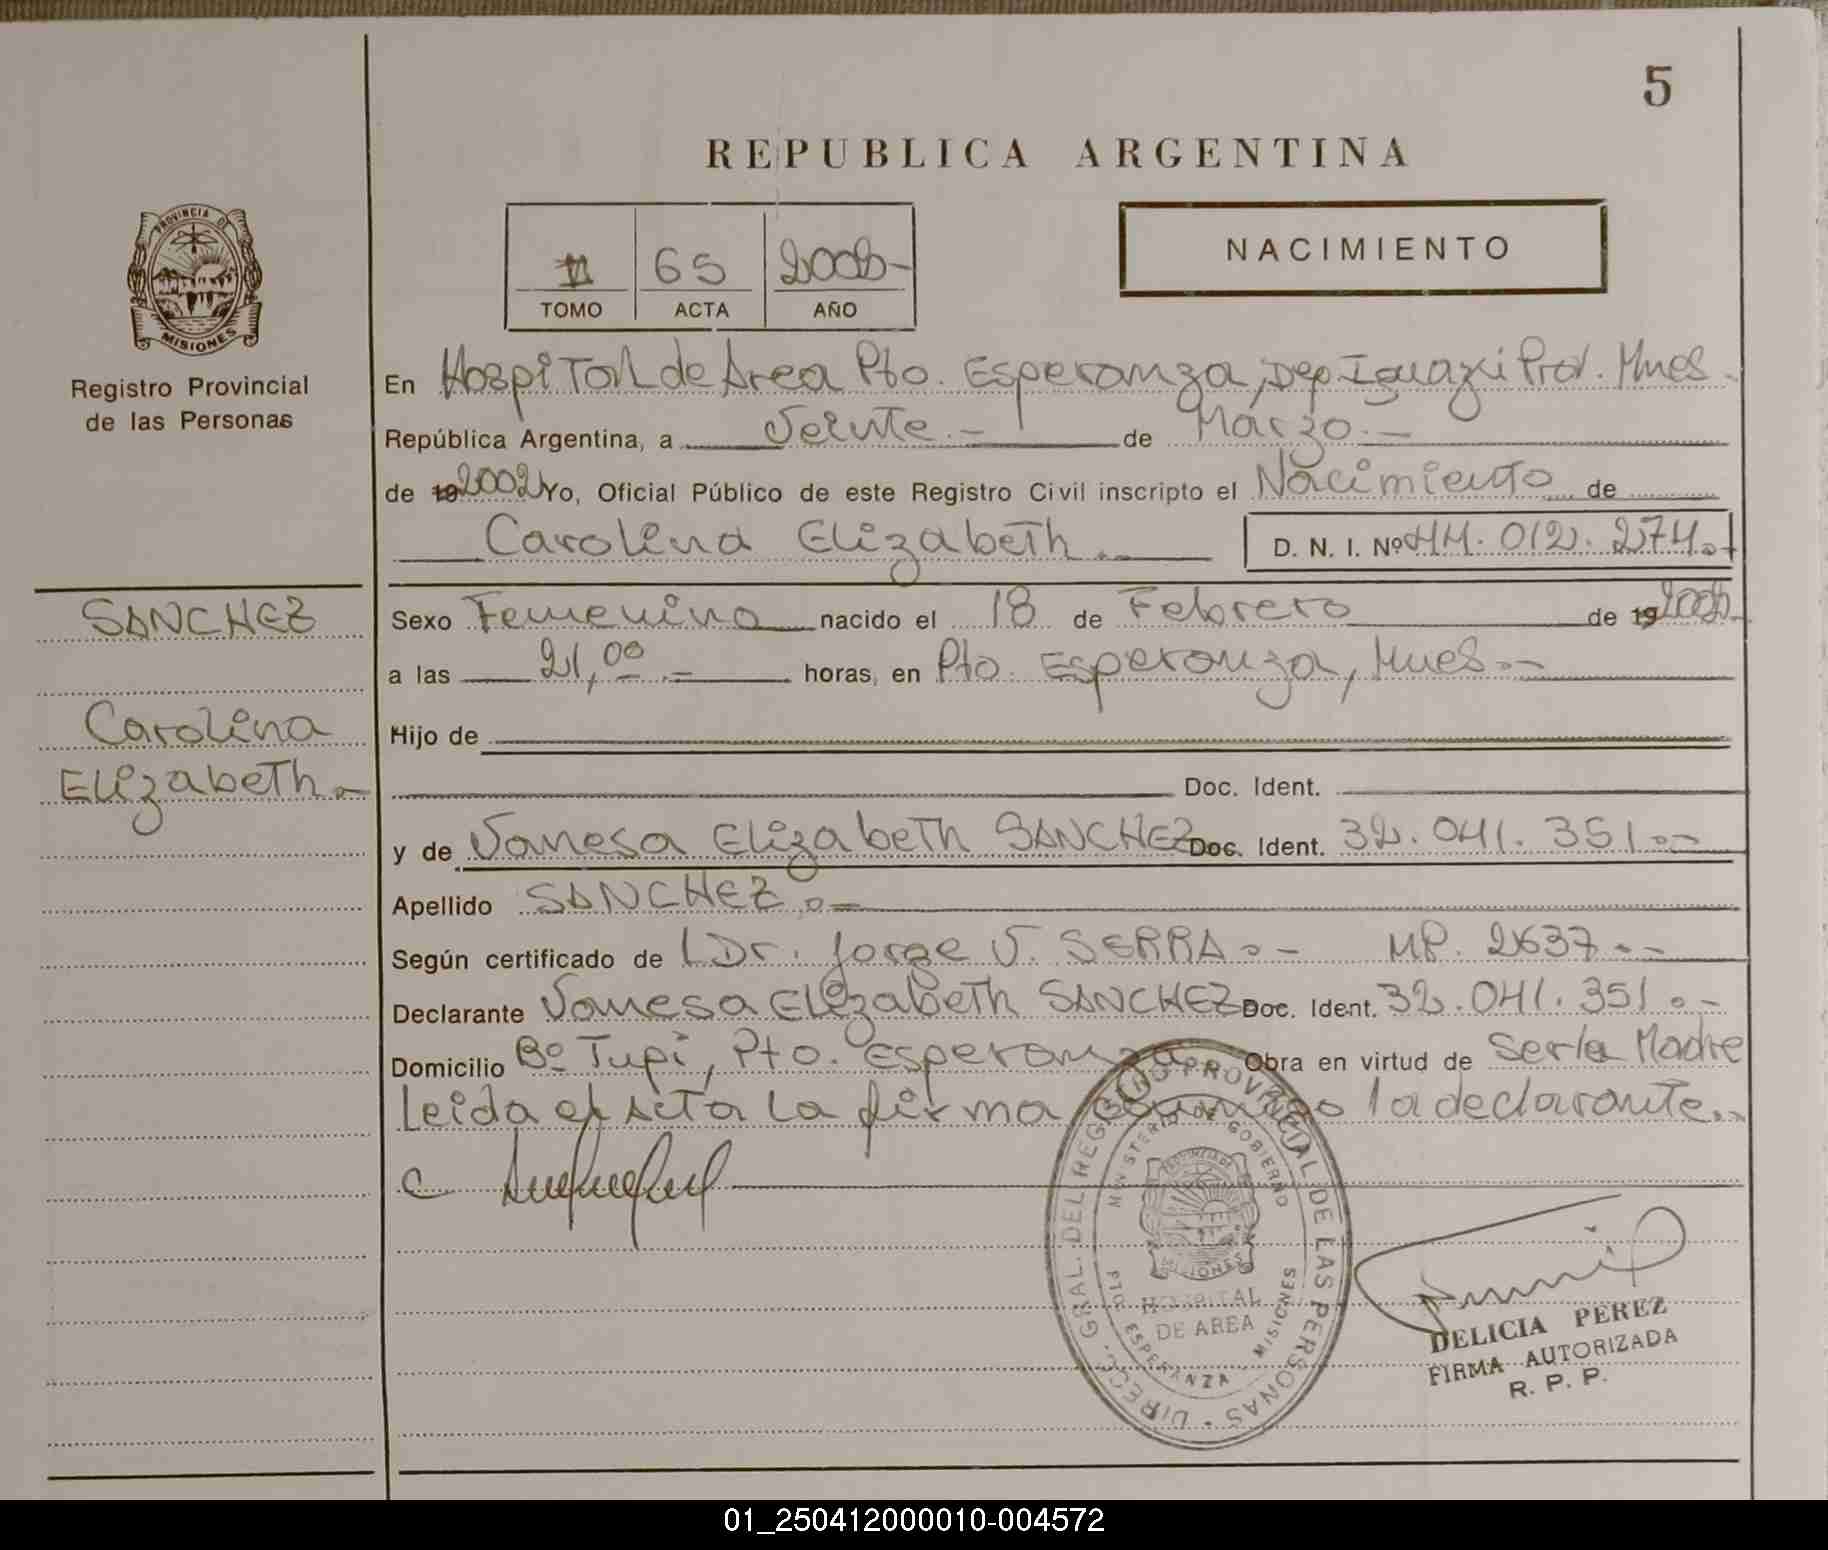 5
REPUBLICA ARGENTINA
PROVINCIA DE
MISIONES
Registro Provincial
de las Personas
II 65 2002-
TOMO ACTA AÑO
NACIMIENTO
En Hospital de Area Pto. Esperanza, Dep Iguazú Prov. Mnes.
República Argentina, a Veinte.- de Marzo.-
de 19 2002 Yo, Oficial Público de este Registro Civil inscripto el Nacimiento de
Carolina Elizabeth.- D. N. I. Nº 44.012.274.-
SANCHEZ
Carolina
Elizabeth.-
Sexo Femenino nacido el 18 de Febrero de 19 2002-
a las 21,00.- horas, en Pto. Esperanza, Mnes.-
Hijo de
Doc. Ident.
y de Vanesa Elizabeth SANCHEZ Doc. Ident. 32.041.351.-
Apellido SANCHEZ.-
Según certificado de Dr. Jorge V. SERRA.- MP. 2637.-
Declarante Vanesa Elizabeth SANCHEZ Doc. Ident. 32.041.351.-
Domicilio Bº Tupi, Pto. Esperanza Obra en virtud de Ser la Madre
Leida el Acta la firma conmigo la declarante.-
DIRECC. GRAL. DEL REGISTRO PROVINCIAL DE LAS PERSONAS
MINISTERIO DE GOBIERNO
PROVINCIA DE
MISIONES
HOSPITAL
DE AREA
PTO ESPERANZA - MISIONES
DELICIA PEREZ
FIRMA AUTORIZADA
R. P. P.
01_250412000010-004572